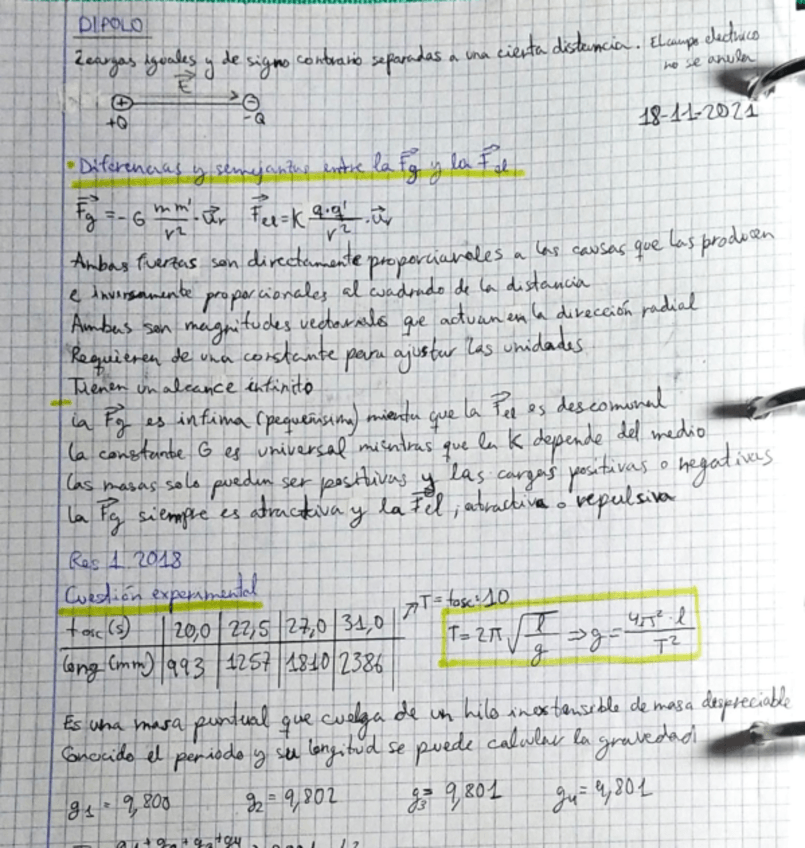 DIPOLO
2 cargas iguales y de signo contrario separadas a una cierta distancia. El campo electrico
no se anula
E
+ -
+Q -Q
18-11-2021
• Diferencias y semejantas entre la Fg y la Fel
Fg = - G m m' / r² · ur Fel = K q·q' / r² · ur
Ambas fuerzas son directamente proporcionales a las causas que las producen
e inversamente proporcionales al cuadrado de la distancia
Ambas son magnitudes vectoriales que actuan en la dirección radial
Requieren de una constante para ajustar las unidades
Tienen un alcance infinito
La Fg es infima (pequeñisima) mientra que la Fel es descomunal
La constante G es universal mientras que la K depende del medio
Las masas solo pueden ser positivas y las cargas positivas o negativas
La Fg siempre es atractiva y la Fel, atractiva o repulsiva
Res 1 2018
Cuestión experimental
tosc (s) 20,0 22,5 27,0 31,0
Long (mm) 993 1257 1810 2386
T = tosc:10
T = 2π √ l / g ⇒ g = 4π²·l / T²
Es una masa puntual que cuelga de un hilo inextensible de masa despreciable
Conocido el periodo y su longitud se puede calcular la gravedad
g1 = 9,800 g2 = 9,802 g3 = 9,801 g4 = 9,801
g1+g2+g3+g4